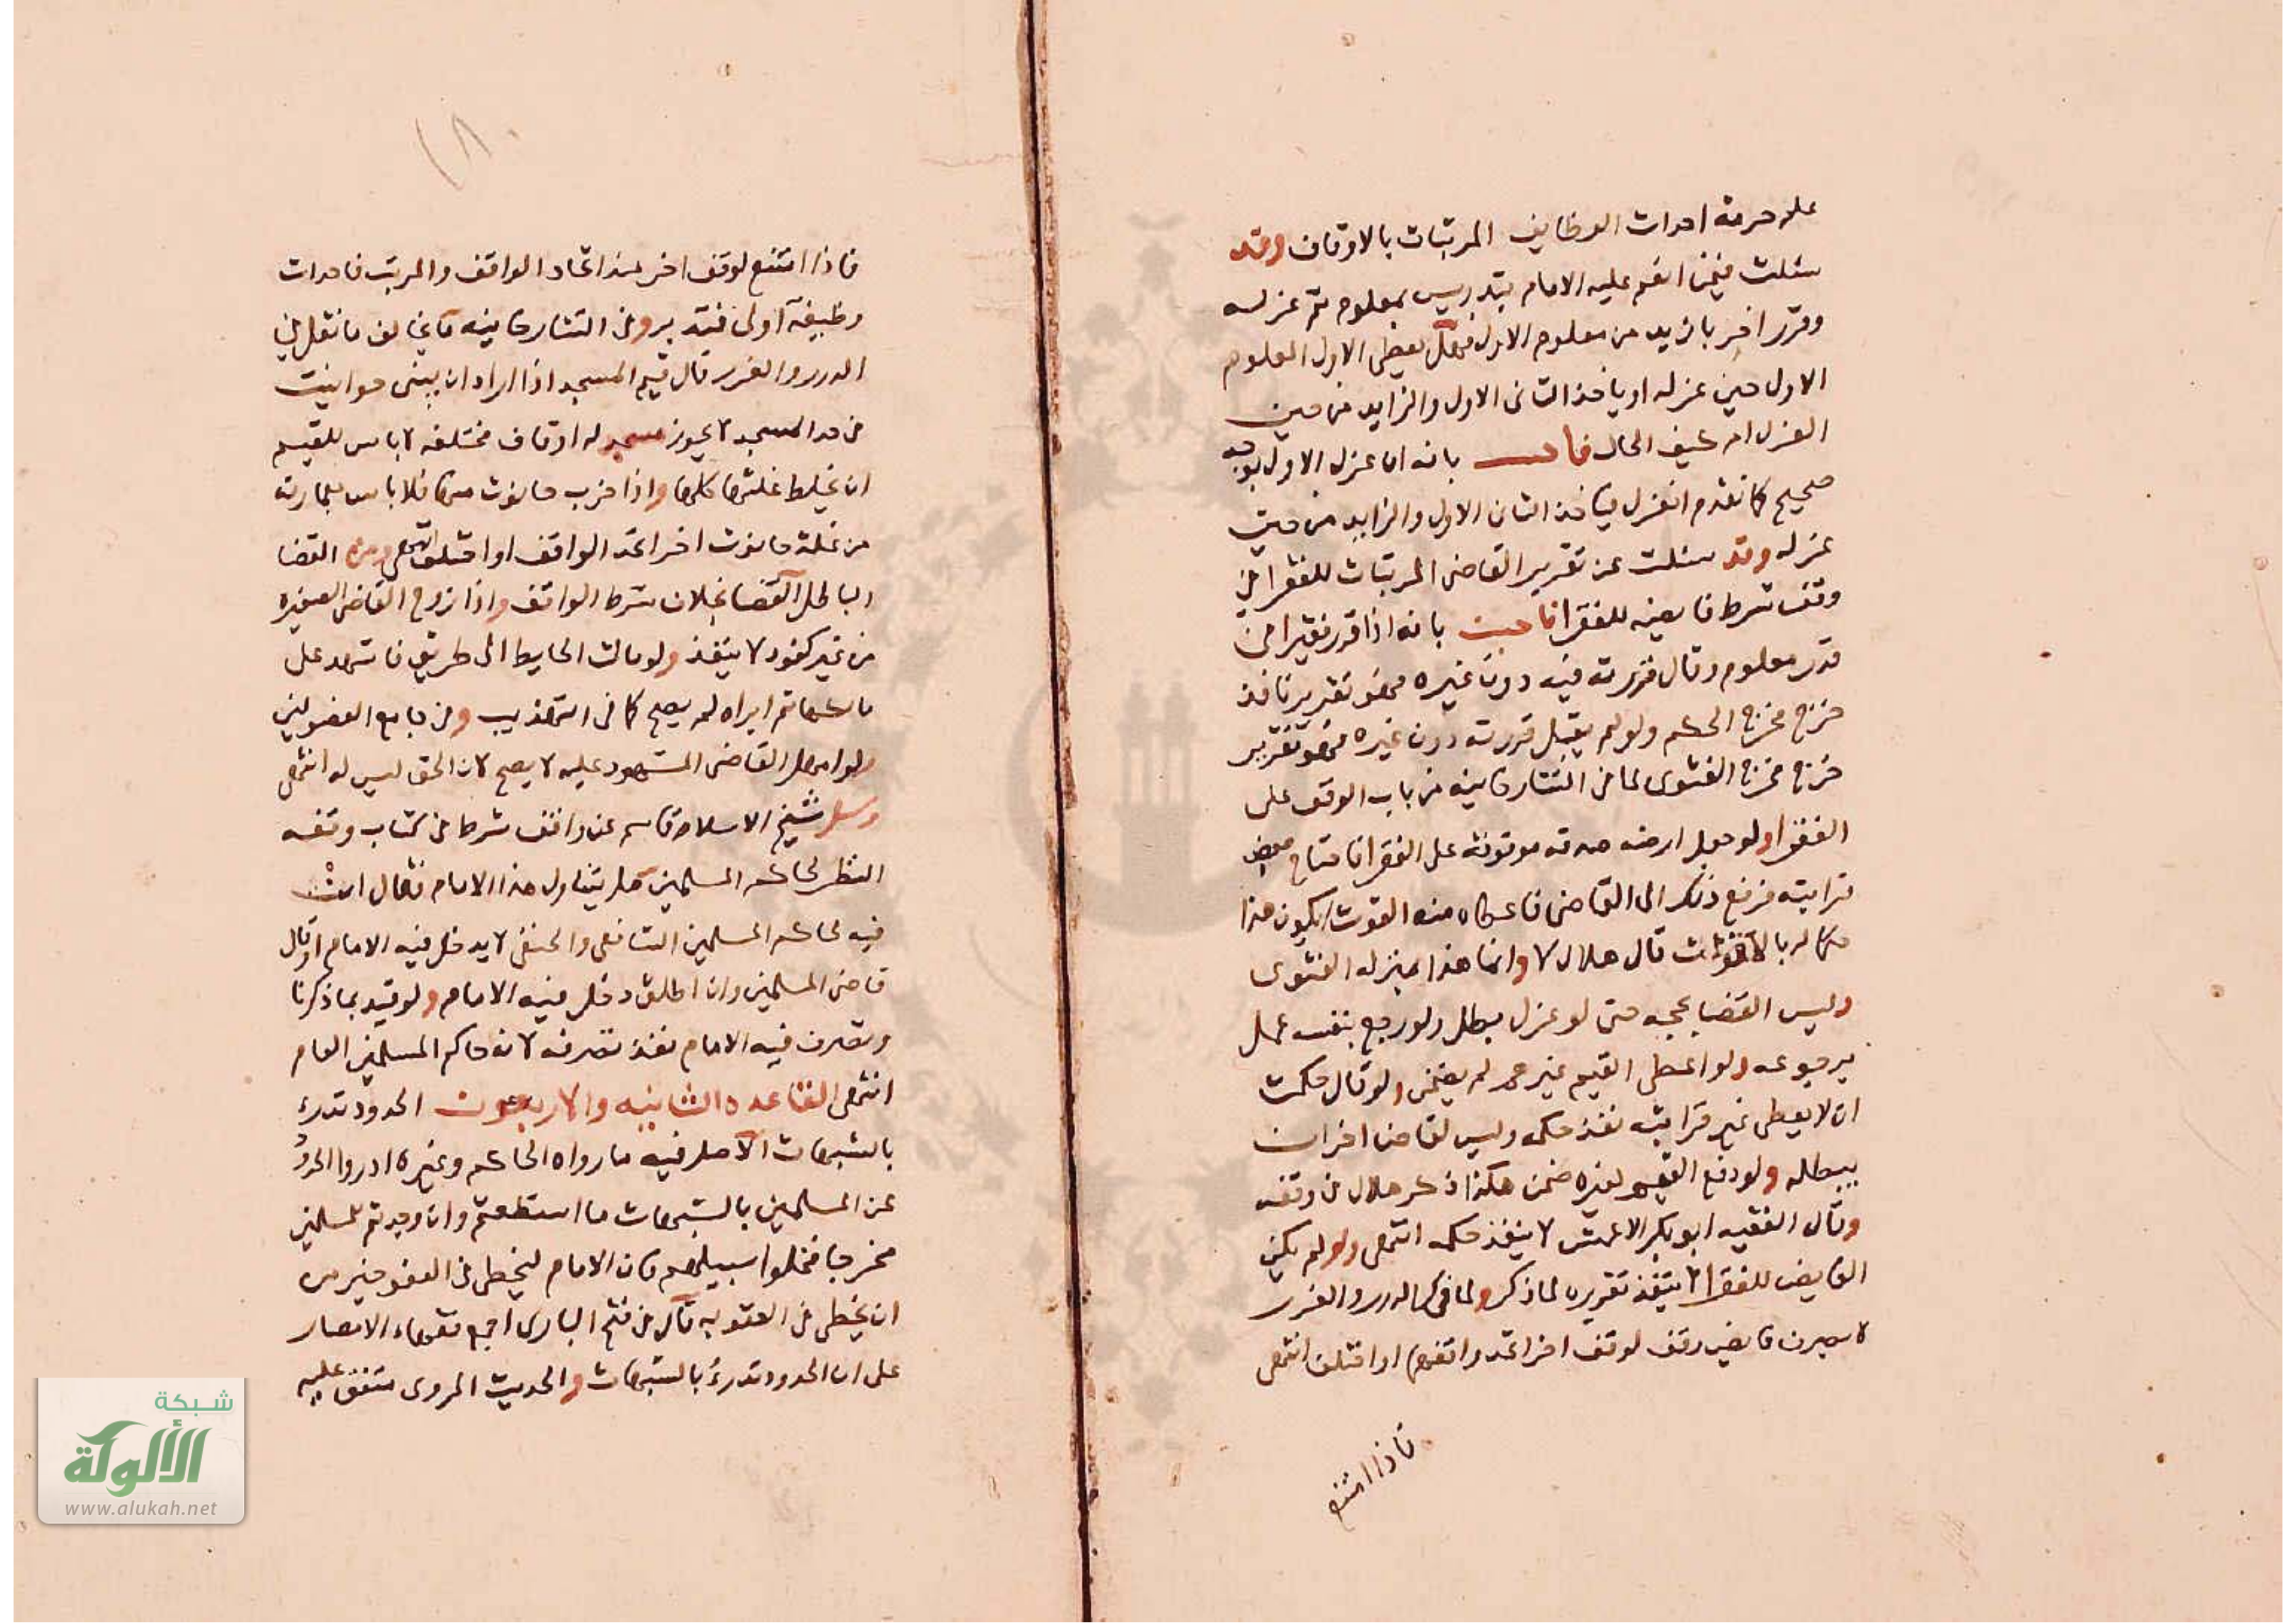 على حرمة احداث الوظايف المرتبات بالاوقاف وقد
سئلت فيمن انعم عليه الامام بتدريس بمعلوم ثم عزله
وقرر اخر بازيد من معلوم الاول فهل يعطى الاول المعلوم
الاول حين عزله او ياخذ الثانى الاول والزايد من حين
العزل ام كيف الحال فاجبت بانه ان عزل الاول بوجه
صحيح كما تقدم انعزل فياخذ الثانى الاول والزايد من حيث
عزله وقد سئلت عن تقرير القاضى المرتبات للفقرا فى
وقف شرط فايضه للفقرا فاجبت بانه اذا قرر فقيرا من
قدر معلوم وقال قررته فيه دون غيره فهو تقرير نافذ
خرج مخرج الحكم ولو لم يقبل قررته دون غيره فهو تقرير
خرج مخرج الفتوى لما فى التتارخانيه من باب الوقف على
الفقرا ولو جعل ارضه صدقه موقوفة على الفقرا فاحتاج بعض
قرابته فرفع ذلك الى القاضى فاعطاه منه القوت ايكون هذا
حكما له بالاقوات قال هلال لا وانما هذا بمنزله الفتوى
وليس القضا بحجه حتى لو عزل بطل ولو رجع بنفسه عمل
برجوعه ولو اعطى القيم غيرهم لم يضمن ولو قال حكمت
ان لا يعطى غير قرابته نفذ حكمه وليس لقاض اخر ان
يبطله ولو دفع القيم لغيره ضمن هكذا ذكر هلال فى وقفه
وقال الفقيه ابو بكر الاعمش لا ينفذ حكمه انتهى ولو لم يكن
الفايض للفقرا لا ينفذ تقريره لما ذكر ولما فى الدرر والغرر
لا يصرف فايض وقف لوقف اخر اتحد واقفهما او اختلف انتهى
فاذا امتنع
١٨٠
فاذا امتنع لوقف اخر عند اتحاد الواقف والمرتب فاحداث
وظيفة اولى فتدبر وفى التتارخانيه ما يخالف ما نقل فى
الدرر والغرر قال قيم المسجد اذا اراد ان يبنى حوانيت
فى حد المسجد لا يجوز مسجد له اوقاف مختلفه لا باس للقيم
ان يخلط غلتها كلها واذا خرب حانوت منها فلا باس بعمارته
من غلة حانوت اخر اتحد الواقف او اختلف انتهى ومن القضا
الباطل القضا بخلاف شرط الواقف واذا زوج القاضى الصغيره
من غير كفوء لا ينفذ ولو مالت الحايط الى طريق فاشهد على
مالكها ثم ابراه لم يصح كما فى التهذيب وفى جامع الفصولين
ولو امهل القاضى المشهود عليه لا يصح لان الحق ليس له انتهى
وسئل شيخ الاسلام قاسم عن واقف شرط فى كتاب وقفه
النظر لحاكم المسلمين هل يتناول هذا الامام فقال ان
فيه لحاكم المسلمين الشافعى والحنفى لا يدخل فيه الامام او قال
قاضى المسلمين وان اطلق دخل فيه الامام ولو قيد بما ذكرنا
وتصرف فيه الامام نفذ تصرفه لانه حاكم المسلمين العام
انتهى القاعده الثانيه والاربعون الحدود تدرئ
بالشبهات الاصل فيه ما رواه الحاكم وغيره ادروا الحدود
عن المسلمين بالشبهات ما استطعتم وان وجدتم للمسلمين
مخرجا فخلوا سبيلهم فان الامام ليخطى فى العفو خير من
ان يخطى فى العقوبه قال فى فتح البارى اجمع فقهاء الامصار
على ان الحدود تدرئ بالشبهات والحديث المروى متفق عليه
شبكة
الألوكة
www.alukah.net